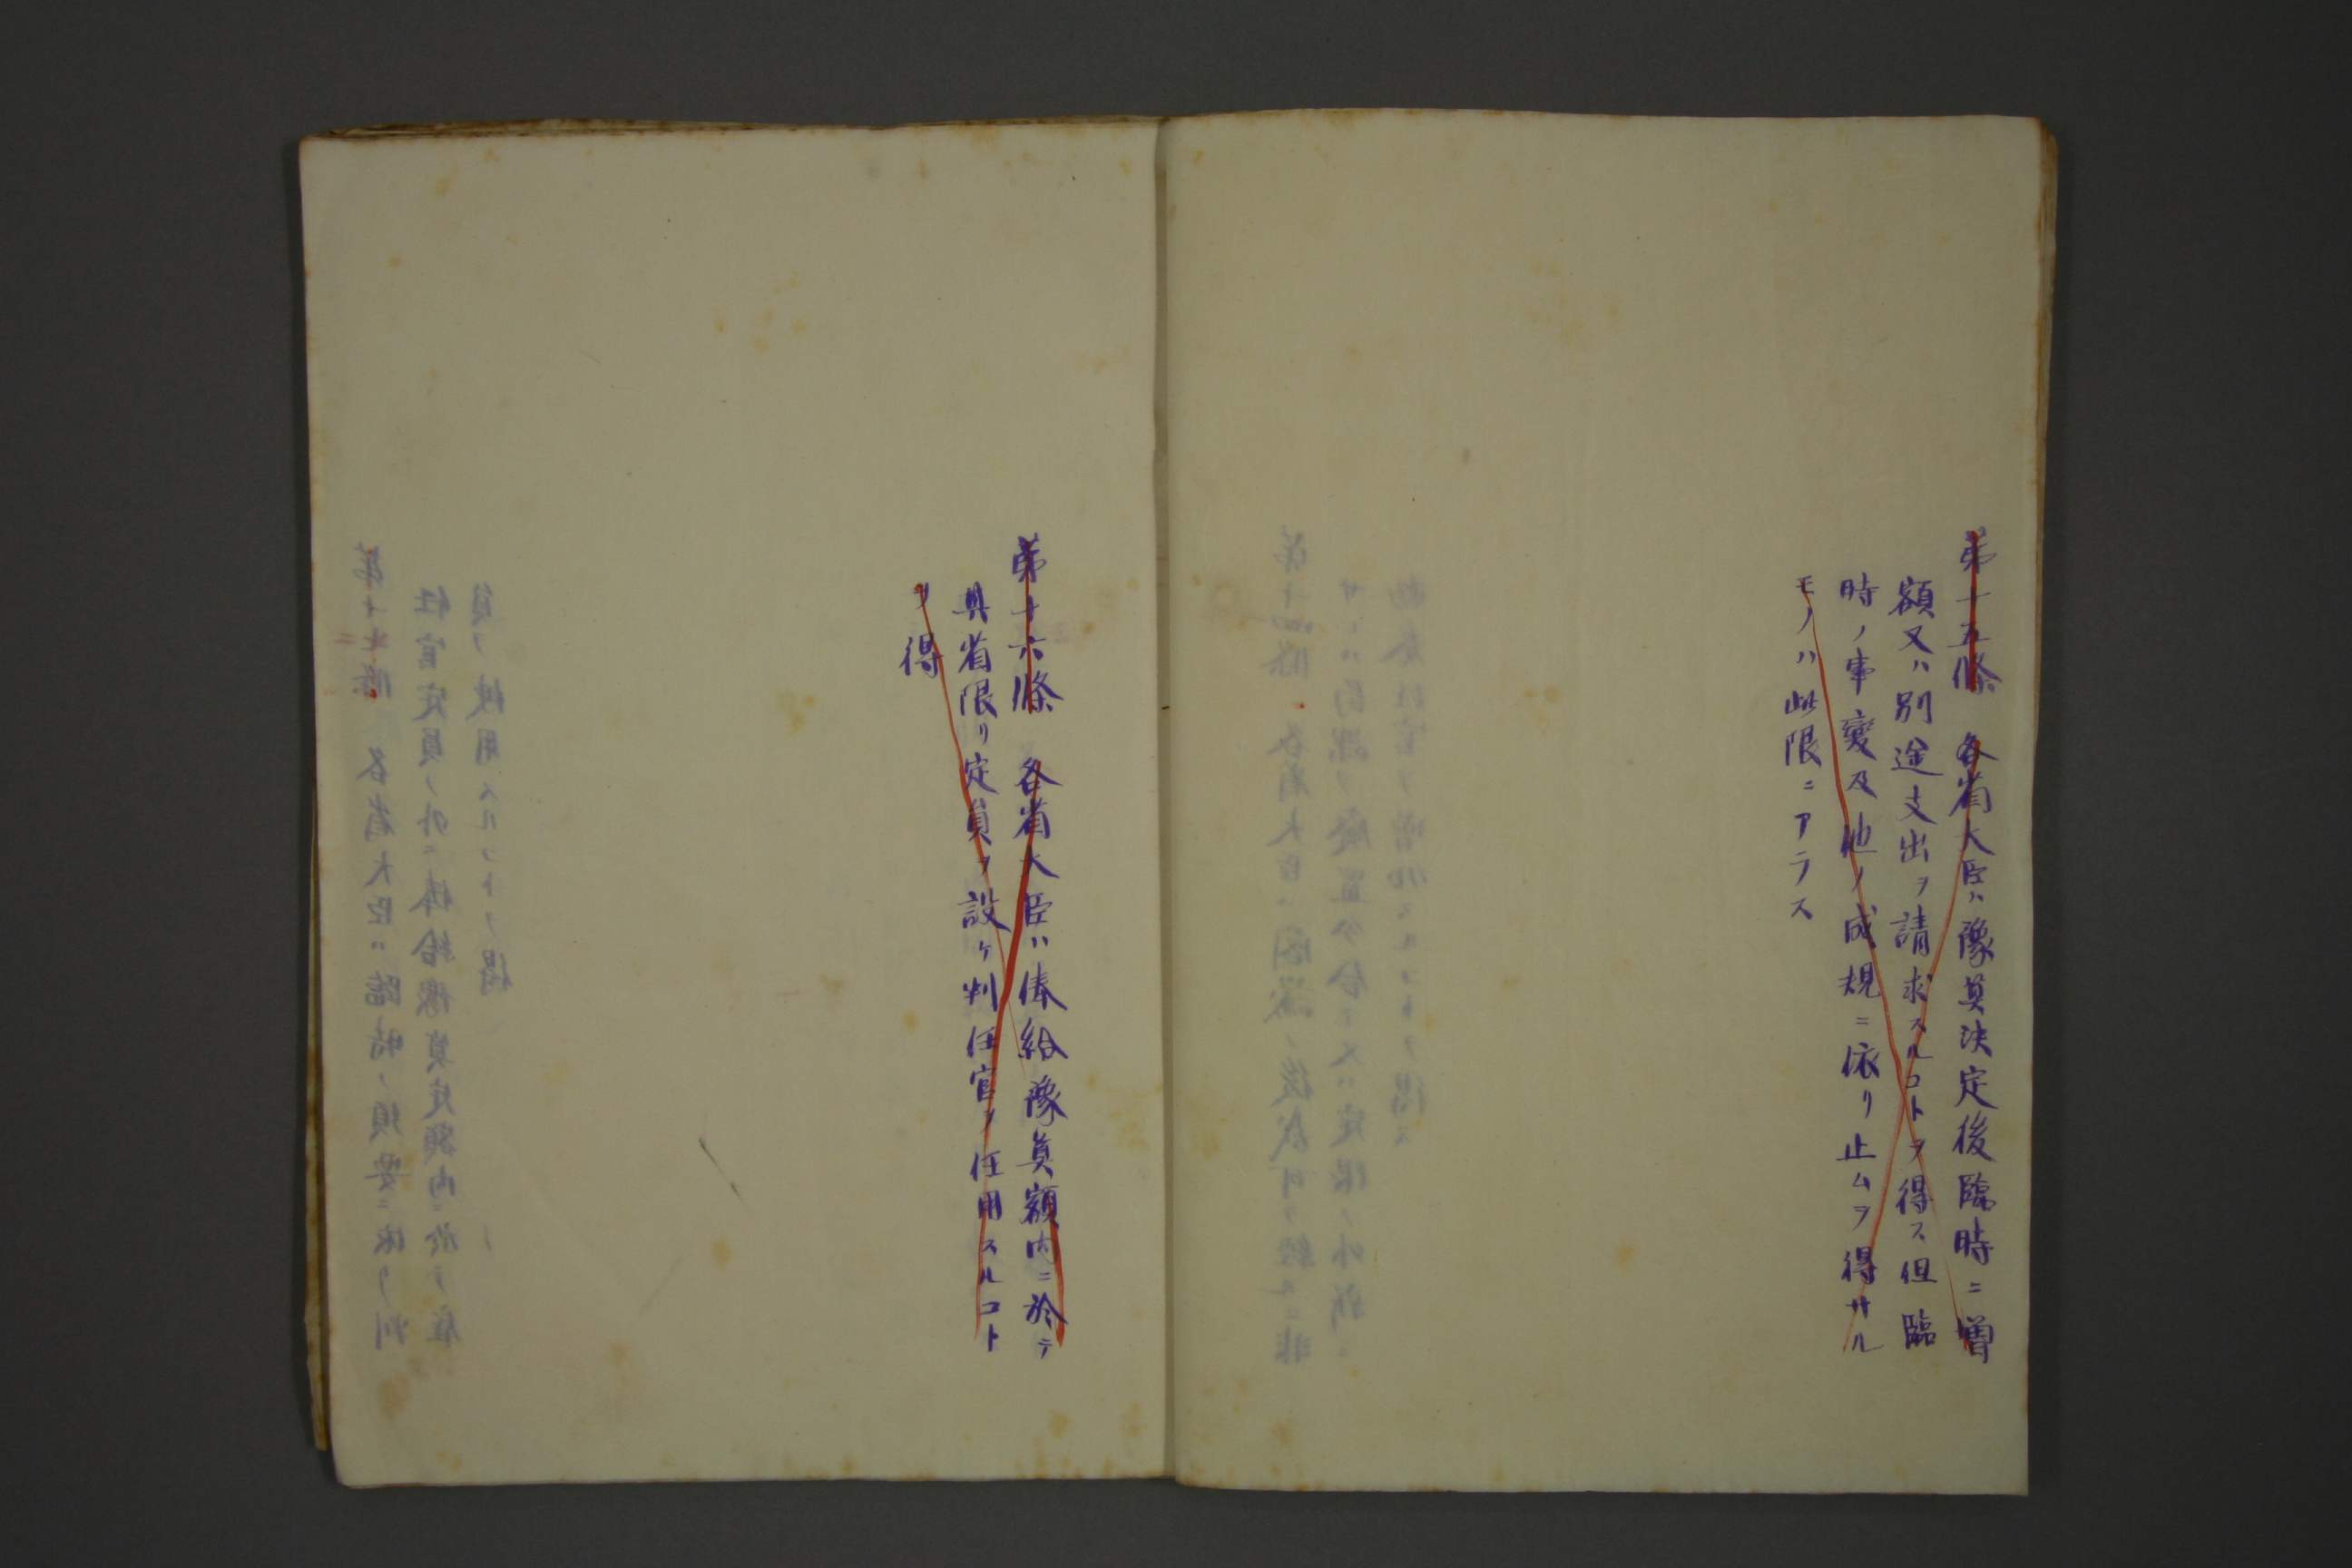 第十五條　各省大臣ハ豫算決定後臨時ニ增
額又ハ別途支出ヲ請求スルコトヲ得ス但臨
時ノ事變及他ノ成規ニ依リ止ムヲ得サル
モノハ此限ニアラス
第十六條　各省大臣ハ俸給豫算額内ニ於テ
其省限リ定員ヲ設ケ判任官ヲ任用スルコト
ヲ得